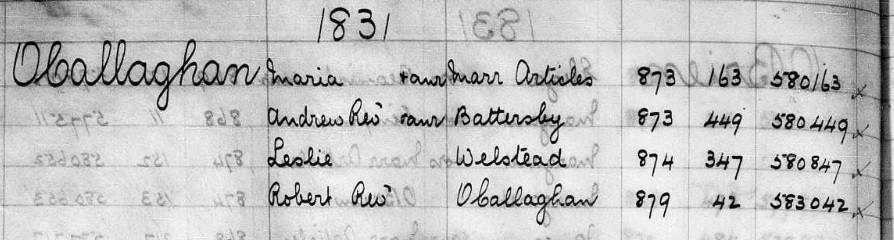 1831
OCallaghan Maria & anr Marr Articles 873 163 580163
Andrew Revd & anr Battersby 873 449 580449
Leslie Welstead 874 347 580847
Robert Revd OCallaghan 879 42 583042